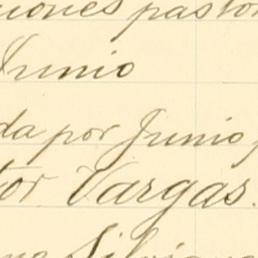 ciones pastor
Junio
da por Junio
tor Vargas.